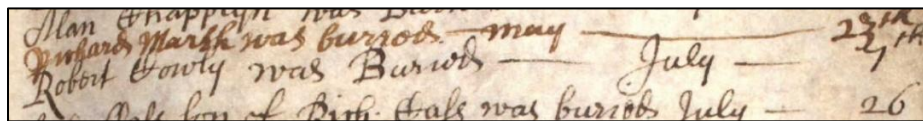 Alan Chapplyn was Buried
Richard Marsh was buried — may — 23th
Robert Cowly was Buried — July — 21th
son of Rich: Cass was buried July — 26